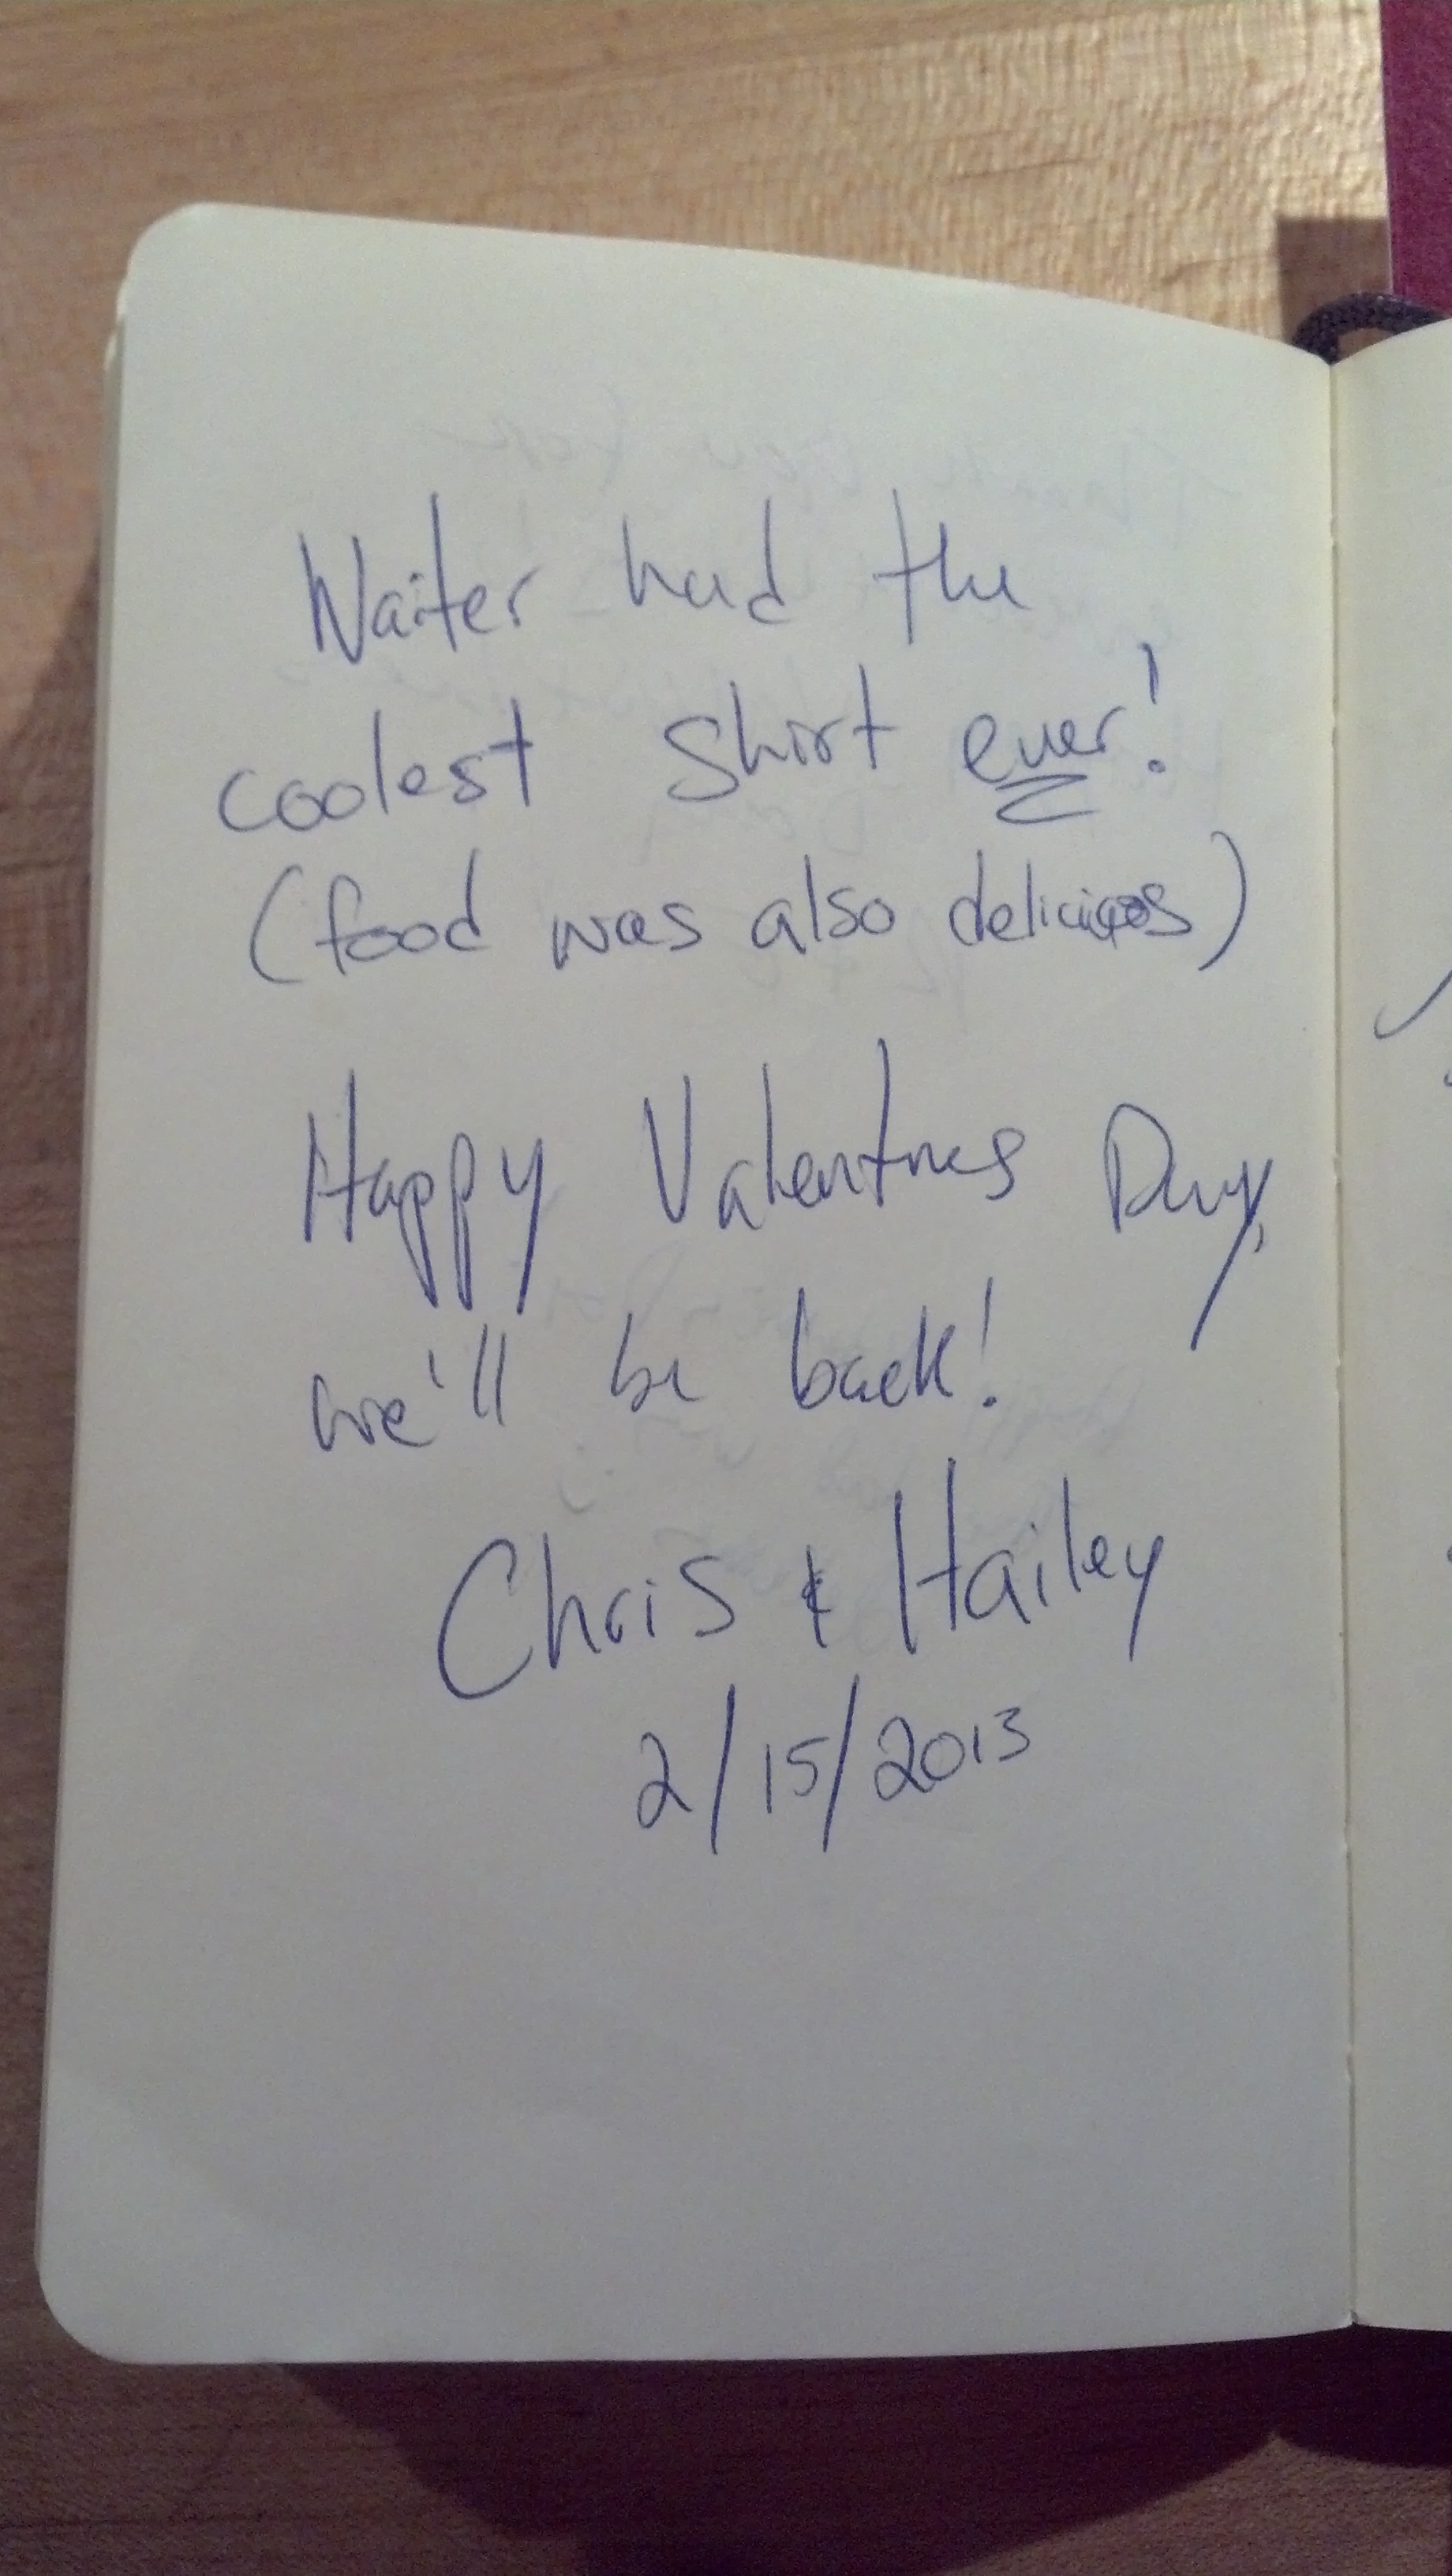 Waiter had the
coolest shirt ever!
(food was also delicious)
Happy Valentines Day,
we'll be back!
Chris & Hailey
2/15/2013